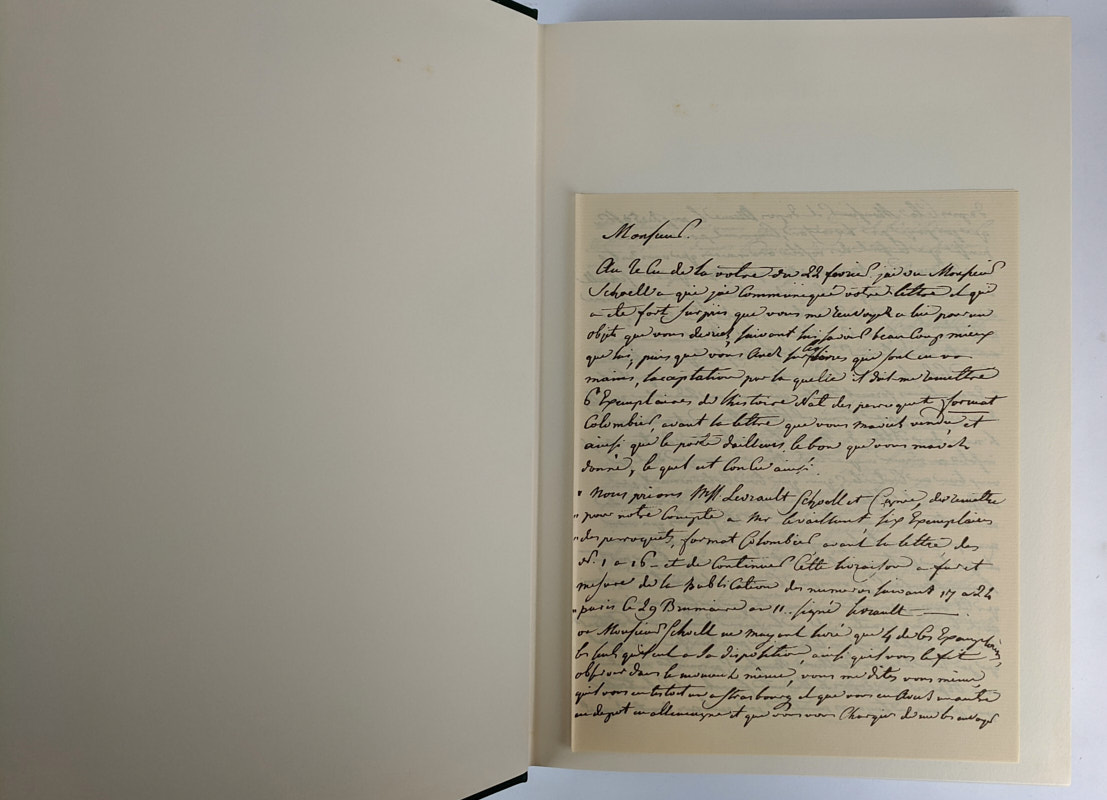 Monsieur.
Au recu de la votre du 22 fevrier jai vu Monsieur
Schoell a qui jai Communiqué votre lettre et qui
a ete fort surpris que vous me renvoyez a lui pour un
objet que vous devriez, suivant lui savoir beaucoup mieux
que lui, puis que vous avez les livres qui sont en vos
mains, lacceptation par la quelle il doit me remettre
6 Exemplaires de lhistoire Nat des perroquets format
Colombier, avant la lettre que vous maviez vendu et
ainsi que le porte dailleurs le bon que vous mavez
donné, le quel est Concu ainsi.
" Nous prions MM Levrault Schoell et Cgnie, de remettre
" pour notre Compte a Mr levaillant six Exemplaires
" des perroquets, format Colombier avant la lettre des
N. 1 a 16 - et de Continuer Cette livraison a fur et
mesure de la publication des numeros suivant 17 a 24
" paris le 29 Brumaire an 11.. signé levrault
or Monsieur Schoell ne mayant livré que 4 de ces Exemplaires,
les seuls qu'il eut a sa disposition, ainsi quil vous le fit
observer dans le moment même, vous me dites vous même,
quil vous en restoit un a strasbourg et que vous en aviez un autre
en depot en allemagne et que vous vous Chargiez de me les envoyer